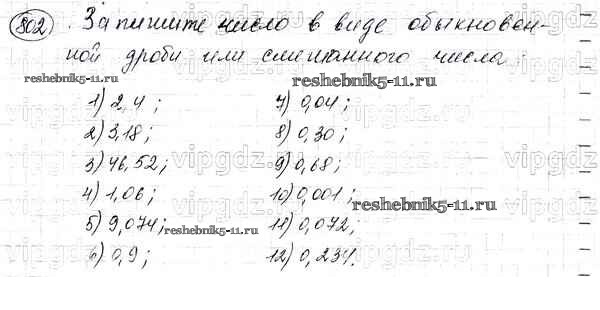 802 . Запишите число в виде обыкновен-
ной дроби или смешанного числа.
reshebnik5-11.ru
reshebnik5-11.ru
1) 2,4; 7) 0,04;
2) 3,18; 8) 0,30;
3) 46,52; 9) 0,68;
4) 1,06; 10) 0,001;
reshebnik5-11.ru
5) 9,074; 11) 0,072;
reshebnik5-11.ru
6) 0,9; 12) 0,234.
vipgdz